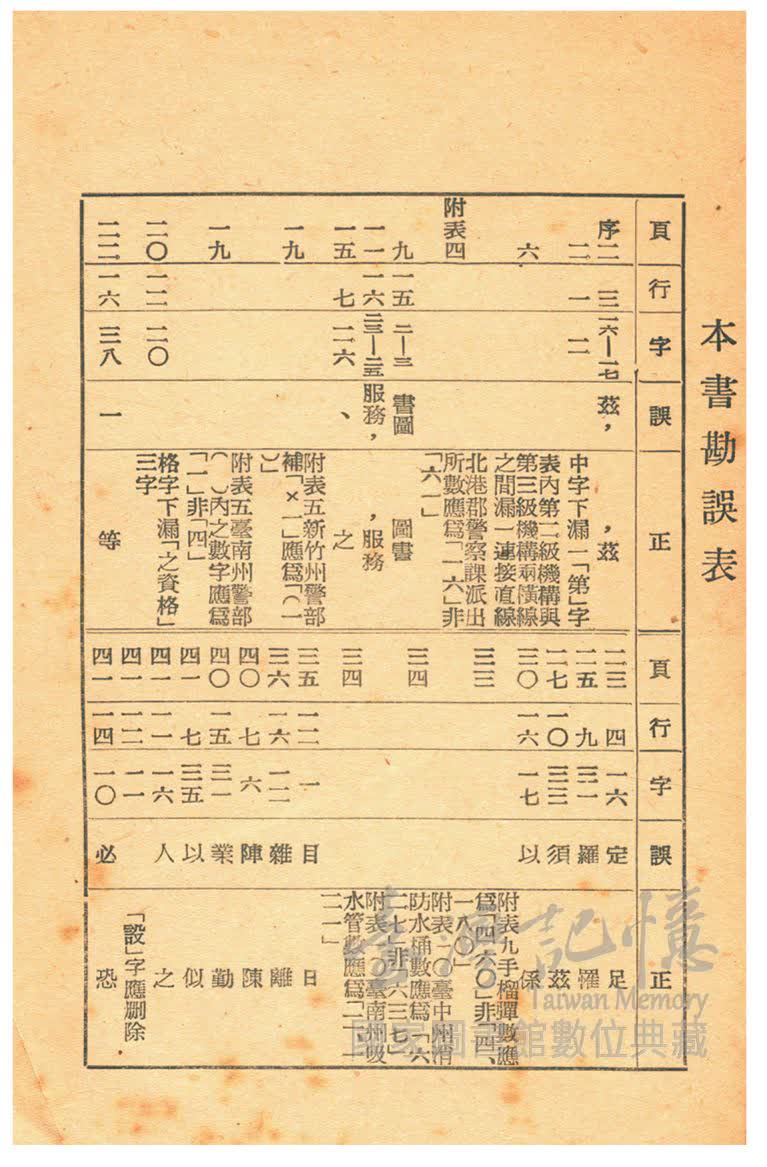 本書勘誤表
頁 行 字 誤 正
序二 三 二六—二七 茲, ,茲
二 一 二 中字下漏一「第」字
六 表內第二級機構與
第三級機構兩橫線
之間漏一連接直線
附表四 北港郡警察課派出
所數應爲「一六」非
「六一」
九 一五 二—三 書圖 圖書
一一 一六 二三—二五 服務, ,服務
一五 七 二六 、 之
一九 附表五新竹州警部
補「×一」應爲「〇一
)」
一九 附表五臺南州警部
( )內之數字應爲
「一」非「四」
二〇 一二 二〇 格字下漏「之資格」
三字
二二 一六 三八 一 等
頁 行 字 誤 正
二三 四 一六 定 足
二五 九 三二 羅 罹
二七 一〇 三三 須 茲
三〇 一六 一七 以 係
三三 附表九手榴彈數應
爲「四六〇」非「四、
一八〇」
三四 附表一〇臺中州消
防水桶數應爲「六
二七」非「六三七」
三四 附表一〇臺南州吸
水管數應爲「二一
二一」
三五 一二 一 目 日
三六 一六 一二 雜 離
四〇 七 六 陣 陳
四〇 一五 三一 業 勤
四一 七 三五 以 似
四一 一一 一六 人 之
四一 一二 一一 「設」字應刪除
四一 一四 一〇 必 恐
臺灣記憶
Taiwan Memory
國家圖書館數位典藏